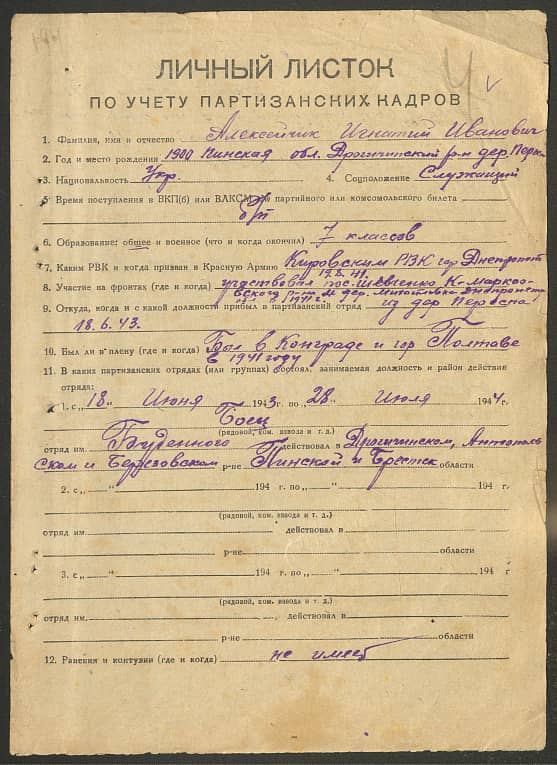 ЛИЧНЫЙ ЛИСТОК
ПО УЧЕТУ ПАРТИЗАНСКИХ КАДРОВ
1. Фамилия, имя и отчество Алексейчик Игнатий Иванович
2. Год и место рождения 1900 Пинская обл. Дрогичинский р-н дер.
3. Национальность Укр. 4. Соцположение Служащий
5. Время поступления в ВКП(б) или ВЛКСМ, № партийного или комсомольского билета
б/п
6. Образование: общее и военное (что и когда окончил) 7 классов
7. Каким РВК и когда призван в Красную Армию Кировским РВК гор Днепропет
8. Участие на фронтах (где и когда) участвовал
19.8.41.
9. Откуда, когда и с какой должности прибыл в партизанский отряд из дер
18.6.43.
10. Был ли в плену (где и когда) Был в Конграде и гор Полтаве
в 1941 году
11. В каких партизанских отрядах (или группах) состоял, занимаемая должность и район действия
отряда:
1. с „18" Июня 1943 г. по „28" Июля 1944 г.
Боец
(рядовой, ком. взвода и т. д.)
отряд им. Буденного действовал в Дрогичинском, Антополь
ском и Березовском р-не Пинской и Брестск области
2. с „ " 194 г. по „ " 194 г.
(рядовой, ком. взвода и т. д.)
отряд им. действовал в
р-не области
3. с „ " 194 г. по „ " 194 г
(рядовой, ком. взвода и т. д.)
отряд им. действовал в
р-не области
12. Ранения и контузии (где и когда) не имеет